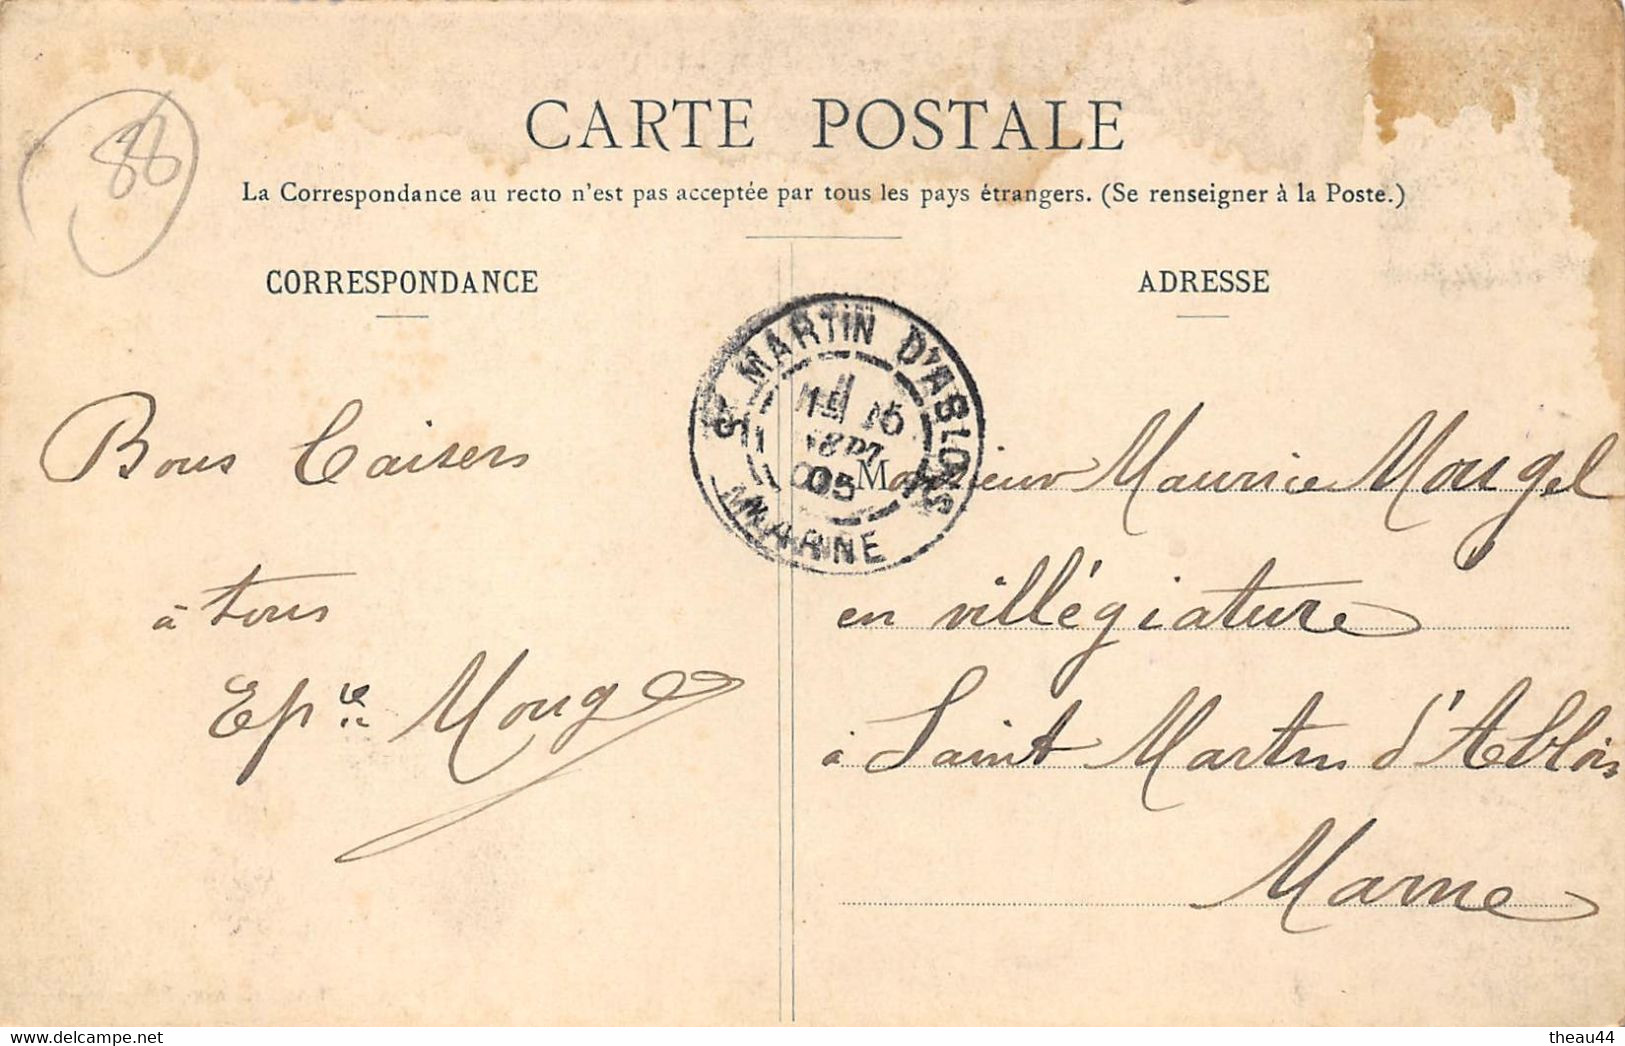 88
CARTE POSTALE
La Correspondance au recto n'est pas acceptée par tous les pays étrangers. (Se renseigner à la Poste.)
CORRESPONDANCE
ADRESSE
ST MARTIN D'ABLOIS
15
SEPT
05
MARNE
Bons Baisers
à tous
Monsieur Maurice Mougel
en villégiature
à Saint Martin d'Ablois
Marne
theau44